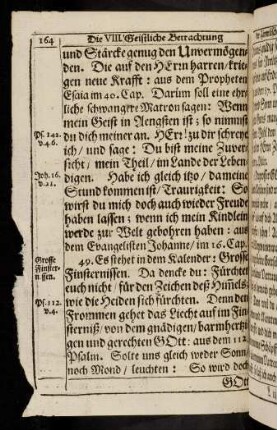 164
Die VIII. Geistliche Betrachtung
und Stärcke genug den Unvermögen-
den. Die auf den HErrn harren/ krie-
gen neue Krafft: aus dem Propheten
Esaia im 40. Cap. Darum soll eine ehr-
liche schwangre Matron sagen: Wenn
mein Geist in Aengsten ist; so nimmst
Ps. 142.
v. 4. 6.
du dich meiner an. HErr! zu dir schreye
ich/ und sage: Du bist meine Zuver-
sicht/ mein Theil/ im Lande der Leben-
digen. Habe ich gleich itzo/ da meine
Joh. 16.
v. 21.
Stund kommen ist/ Traurigkeit: So
wirst du mich doch auch wieder Freude
haben lassen; wenn ich mein Kindlein
werde zur Welt gebohren haben: aus
dem Evangelisten Johanne/ im 16. Cap.
49. Es stehet in dem Kalender: Grosse
Grosse
Finstern
issen.
Finsternissen. Da dencke du: Fürchtet
euch nicht/ für den Zeichen deß Himels/
wie die Heiden sich fürchten. Denn den
Ps. 112.
v. 4.
Frommen gehet das Liecht auf im Fin-
sterniß/ von dem gnädigen/ barmhertzi-
gen und gerechten GOtt: aus dem 112
Psalm. Solte uns gleich weder Sonn
noch Mond/ leuchten: So wird doch
GOtt